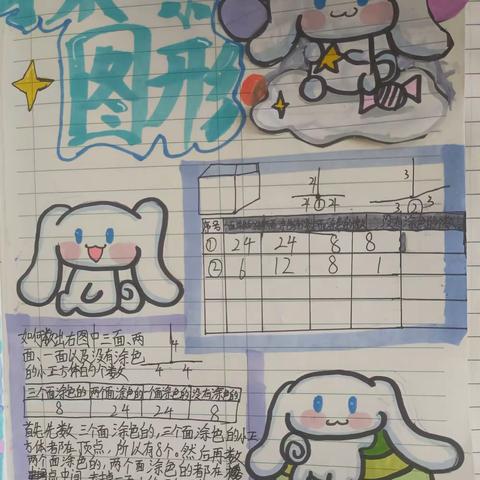 图形
4
4 ① 4
3
3 ② 3
序号
① 24 24 8 8
② 6 12 8 1
如何数出右图中三面、两
面、一面以及没有涂色
的小正方体的个数
4
4 4
三个面涂色的 两个面涂色的 一个面涂色的 没有涂色的
8 24 24 8
首先先数三个面涂色的,三个面涂色的小正
方体都在顶点,所以有8个。然后再数
两个面涂色的,两个面涂色的都在